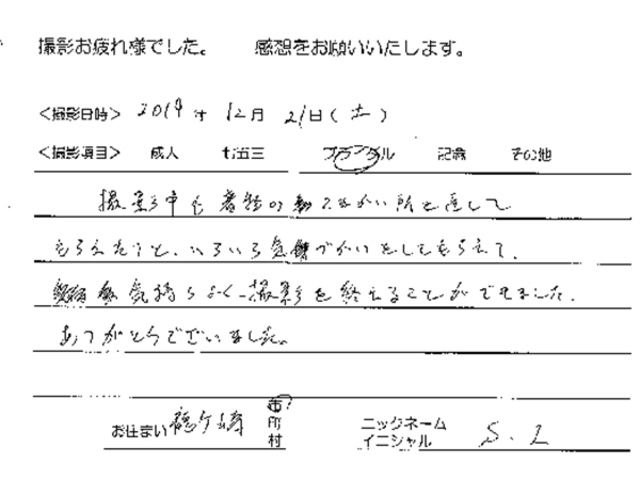 撮影お疲れ様でした。 感想をお願いいたします。
<撮影日時> 2019年 12月 21日(土)
<撮影項目> 成人 七五三 ブライダル 記念 その他
撮影中も着物の かい所を直して
もらえたりと、いろいろ気づかいをしてもらえて、
気持ちよく撮影を終えることができました。
ありがとうございました。
お住まい 龍ケ崎 市町村
ニックネーム
イニシャル S. I